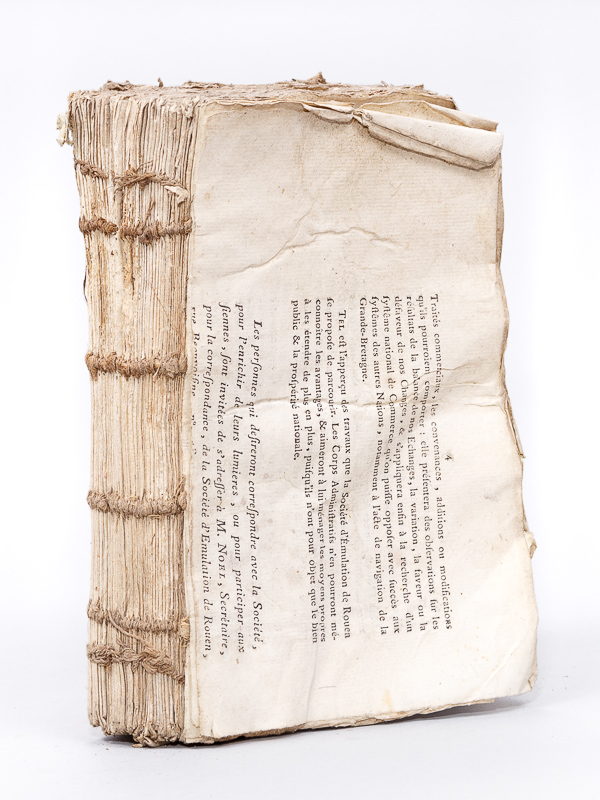 4
Traités commerciaux, les convenances, additions ou modifications
qu'ils pourroient comporter : elle préſentera des obſervations ſur les
réſultats de la balance de nos Echanges, la variation, la faveur ou la
défaveur de nos Changes, & s'appliquera enfin à la recherche d'un
ſyſtême national de Commerce qu'on puiſſe oppoſer avec ſuccès aux
ſyſtêmes des autres Nations, notamment à l'acte de navigation de la
Grande-Bretagne.
TEL eſt l'apperçu des travaux que la Société d'Emulation de Rouen
ſe propoſe de parcourir. Les Corps Adminiſtratifs n'en pourront mé-
connoître les avantages, & aimeront à lui ménager les moyens propres
à les étendre de plus en plus, puiſqu'ils n'ont pour objet que le bien
public & la proſpérité nationale.
Les perſonnes qui deſireront correſpondre avec la Société,
pour l'enrichir de leurs lumieres, ou pour participer aux
ſiennes, ſont invitées de s'adreſſer à M. NOEL, Secrétaire,
pour la correſpondance, de la Société d'Emulation de Rouen,
rue